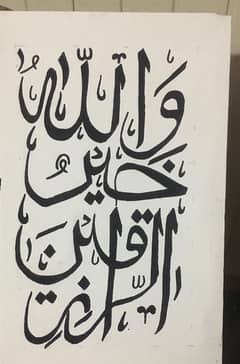 وَاللّٰهُ
خَيْرُ
الرّازِقِينَ